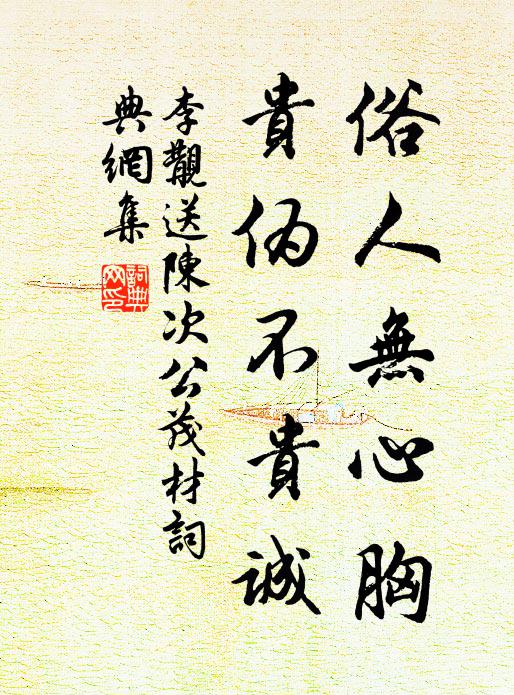 俗人無心胸
貴偽不貴誠
李覯送陳次公茂材詞
典網集
詞典
网印